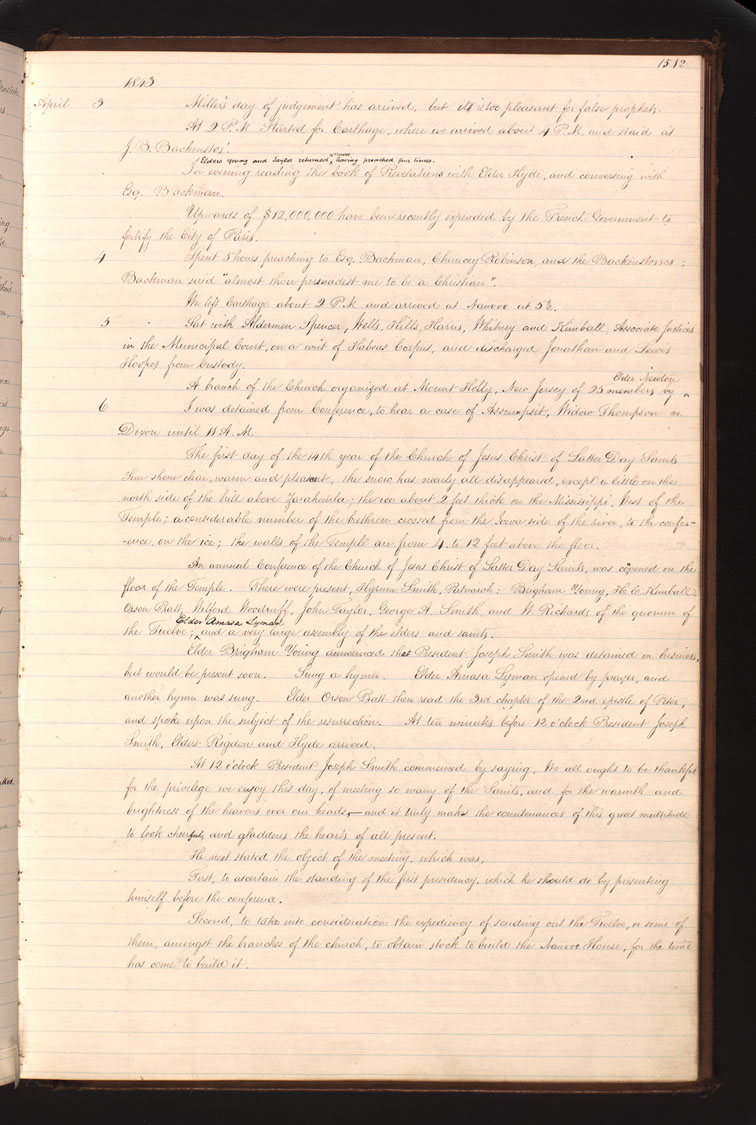 1512
1843
April 3 Miller's day of judgement has arrived, but it is too pleasant for false prophets.
At 2 P.M. Started for Carthage, where we arrived about 4 P.M. and staid at
J. B. Backenstos'.
Elders Young and Taylor returned, having preached four times.
In evening reading the book of Revelations with Elder Hyde, and conversing with
Esq. Backman.
Upwards of $12,000,000 have been recently expended by the French Government to
fortify the City of Paris.
4 Spent 5 hours preaching to Esq. Backman, Chancey Robinson, and the Backenstosses:
Backman said "almost thou persuadest me to be a Christian".
We left Carthage about 2 P.M. and arrived at Nauvoo at 5½.
5 Sat with Aldermen Spencer, Wells, Hills, Harris, Whitney and Kimball, Associate Justices
in the Municipal Court, on a writ of Habeas Corpus, and discharged Jonathan and Lewis
Hoopes from Custody.
Elder Newton
A branch of the Church organized at Mount Holly, New Jersey of 25 members by ^
6 I was detained from Conference, to hear a case of Assumpsit, Widow Thompson vs.
Dixon until 11 A.M.
The first day of the 14th year of the Church of Jesus Christ of Latter Day Saints
Sun shone clear, warm and pleasant, the snow has nearly all disappeared, except a little on the
north side of the hill above Zarahemla; the ice about 2 feet thick on the Mississippi, West of the
Temple; a considerable number of the brethren crossed from the Iowa side of the river, to the confer-
-ence, on the ice; the walls of the Temple are from 4 to 12 feet above the floor.
An annual Conference of the Church of Jesus Christ of Latter Day Saints, was convened on the
floor of the Temple. There were present, Hyrum Smith, Patriarch: Brigham Young, H. C. Kimball,
Orson Pratt, Wilford Woodruff, John Taylor, George A. Smith, and W. Richards of the quorum of
Elder Amasa Lyman
the Twelve; ^ and a very large assembly of the elders and saints.
Elder Brigham Young announced that President Joseph Smith was detained on business,
but would be present soon. Sung a hymn. Elder Amasa Lyman opened by prayer, and
another hymn was sung. Elder Orson Pratt then read the 3rd chapter of the 2nd epistle of Peter,
and spoke upon the subject of the resurrection. At ten minutes before 12 o'clock President Joseph
Smith, Elders Rigdon and Hyde arrived.
At 12 o'clock President Joseph Smith commenced by saying, We all ought to be thankful
for the privilege we enjoy this day, of meeting so many of the Saints, and for the warmth and
brightness of the heavens over our heads, — and it truly makes the countenances of this great multitude
to look cheerful, and gladdens the hearts of all present.
He next stated the object of the meeting, which was,
First, to ascertain the standing of the first presidency, which he should do by presenting
himself before the conference.
Second, to take into consideration the expediency of sending out the Twelve, or some of
them, amongst the branches of the church, to obtain stock to build the Nauvoo House, for the time
has come to build it.